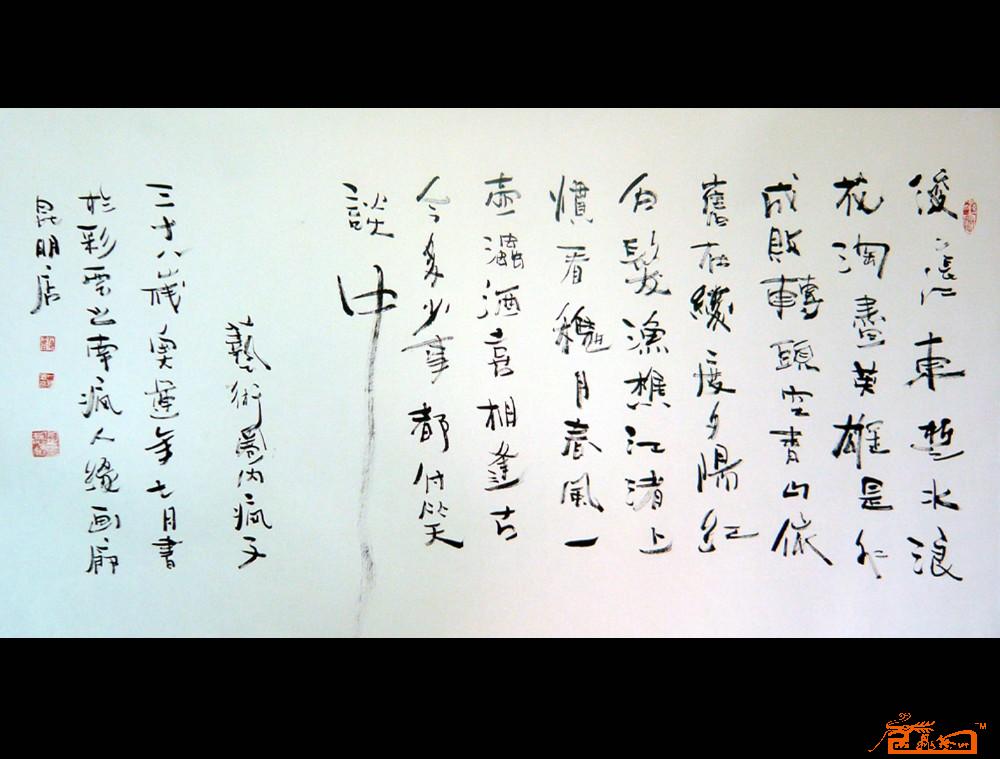 滚滚長江東逝水浪
花淘盡英雄是非
成敗轉頭空青山依
舊在幾度夕陽紅
白髮漁樵江渚上
慣看穐月春風一
壶濁酒喜相逢古
今多少事都付笑
談中
藝術圈内瘋子
三十八歲奥運年七月書
於彩雲之南瘋人缘画廊
昆明店